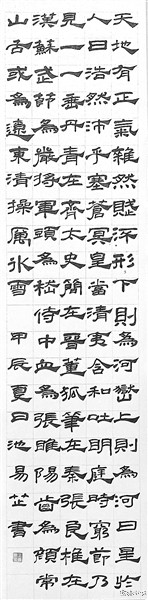 天地有正氣雜然賦流形下則為河嶽上則為河日星於
人曰浩然沛乎塞蒼冥皇當清夷含和吐明庭時窮節乃
見一一垂丹青在齊太史簡在晉董狐筆在秦張良椎在
漢蘇武節為嚴將軍頭為嵇侍中血為張睢陽齒為顏常
山舌或為遼東清操厲冰雪
甲辰夏日池易芷書